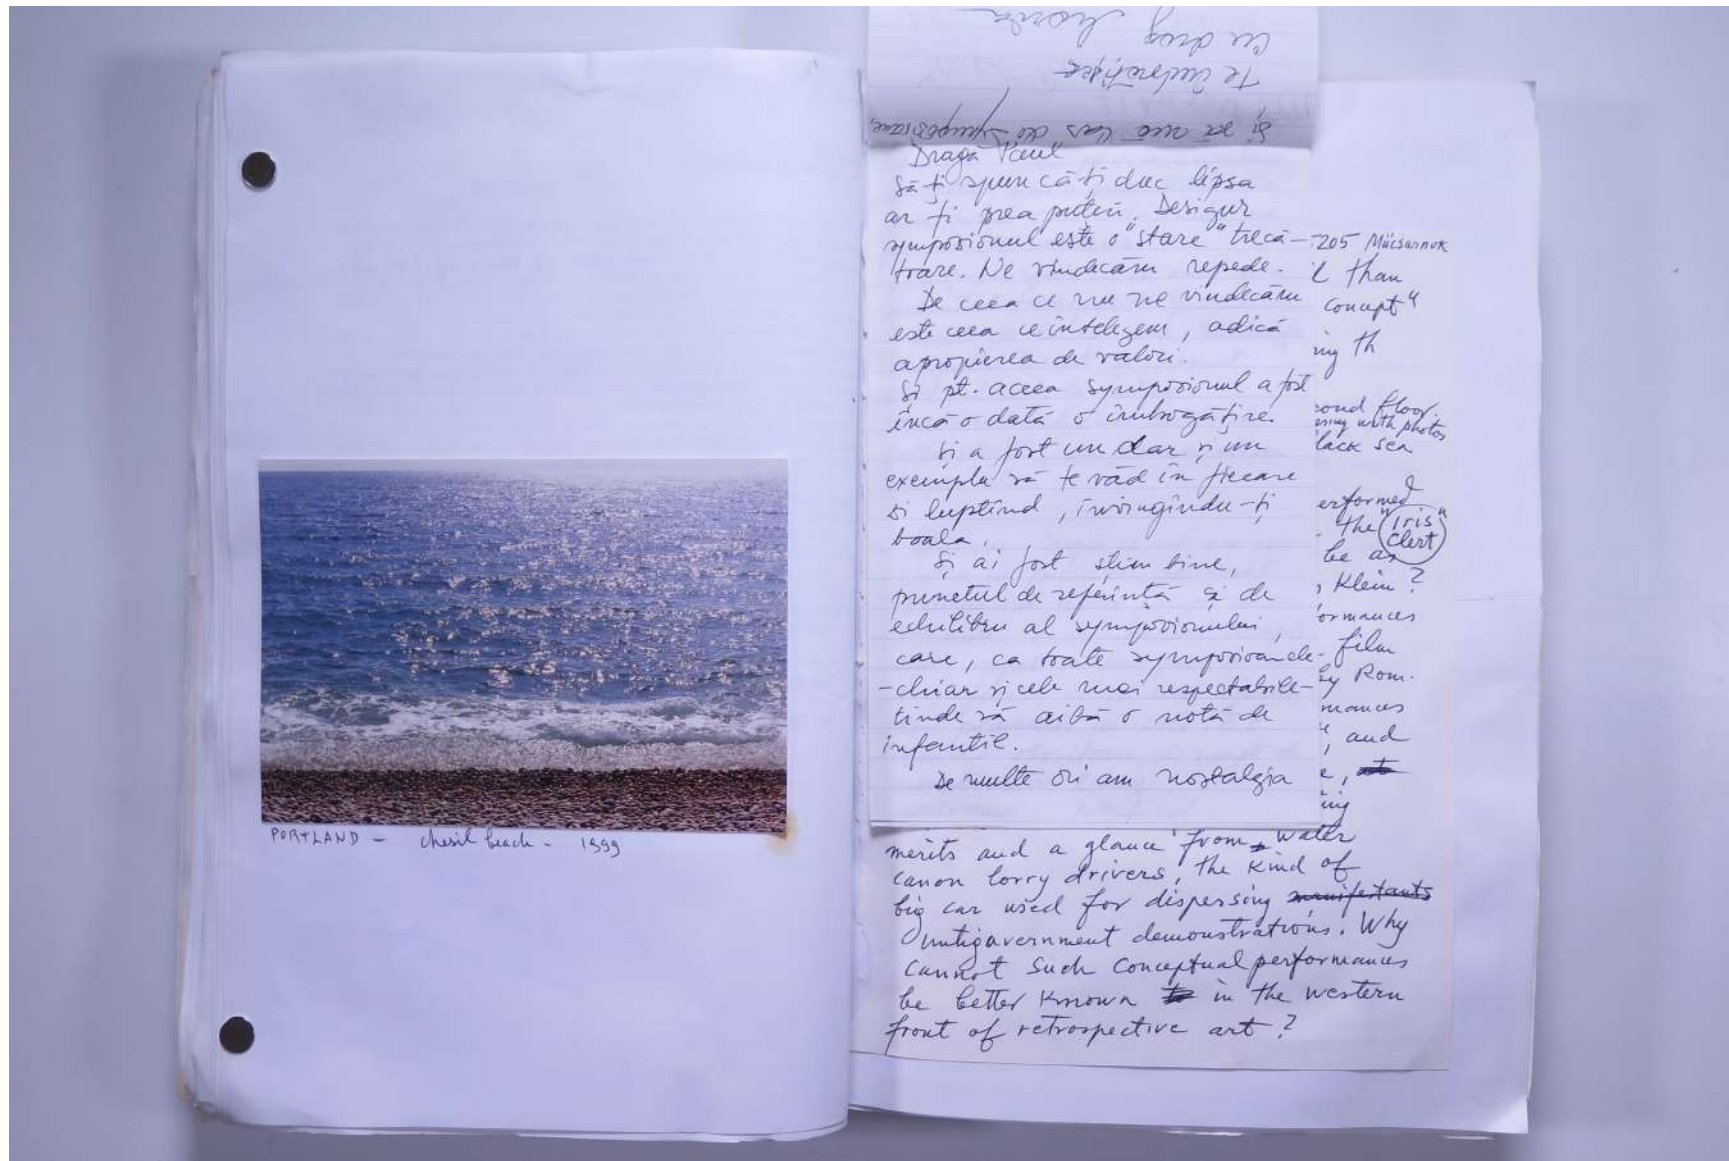 PORTLAND - chesil beach - 1999
Cu drag
Te îmbrățișez
și să mă las de symposioane,
Dragă Paul
Să-ți spun că-ți duc lipsa
ar fi prea puțin. Desigur
symposionul este o "stare" trecă-
toare. Ne vindecăm repede.
De ceea ce nu ne vindecăm
este ceea ce întelegem, adică
apropierea de valori.
Și pt. aceea symposionul a fost
încă o dată o îmbogățire.
Și a fost un dar și un
exemplu să te văd în fiecare
zi luptînd, învingîndu-ți
boala.
Și ai fost știm bine,
punctul de referință și de
echilibru al symposionului,
care, ca toate symposioanele-
-chiar și cele mai respectabile-
tinde să aibă o notă de
infantil.
De multe ori am nostalgia
205 Mücsarnok
than
concept"
ond floor.
with photos
lack sea
erformed
the "Iris
Clert"
be as
Klein?
ormances
film
by Rom.
mances
, and
merits and a glance from water
canon lorry drivers, the kind of
big car used for dispersing manifestants
antigavernment demonstrations. Why
cannot such conceptual performances
be better known to in the western
front of retrospective art?